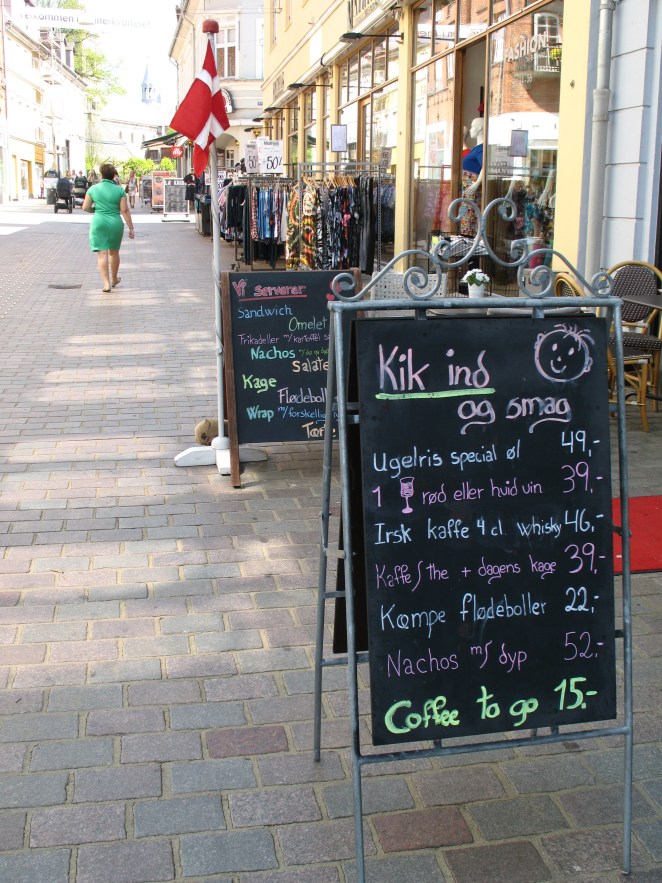 50.-
50.-
FASHION
Vi serverer
Sandwich
Omelet
Frikadeller m/kartoffel
Nachos
Salate
Kage
Flødeboll
Wrap m/forskellig
Tærte
Kik ind
og smag
Ugelris special øl 49,-
1 rød eller hvid vin 39,-
Irsk kaffe 4 cl. Whisky 46,-
Kaffe/the + dagens kage 39,-
Kæmpe flødeboller 22,-
Nachos m/ dyp 52,-
Coffee to go 15.-